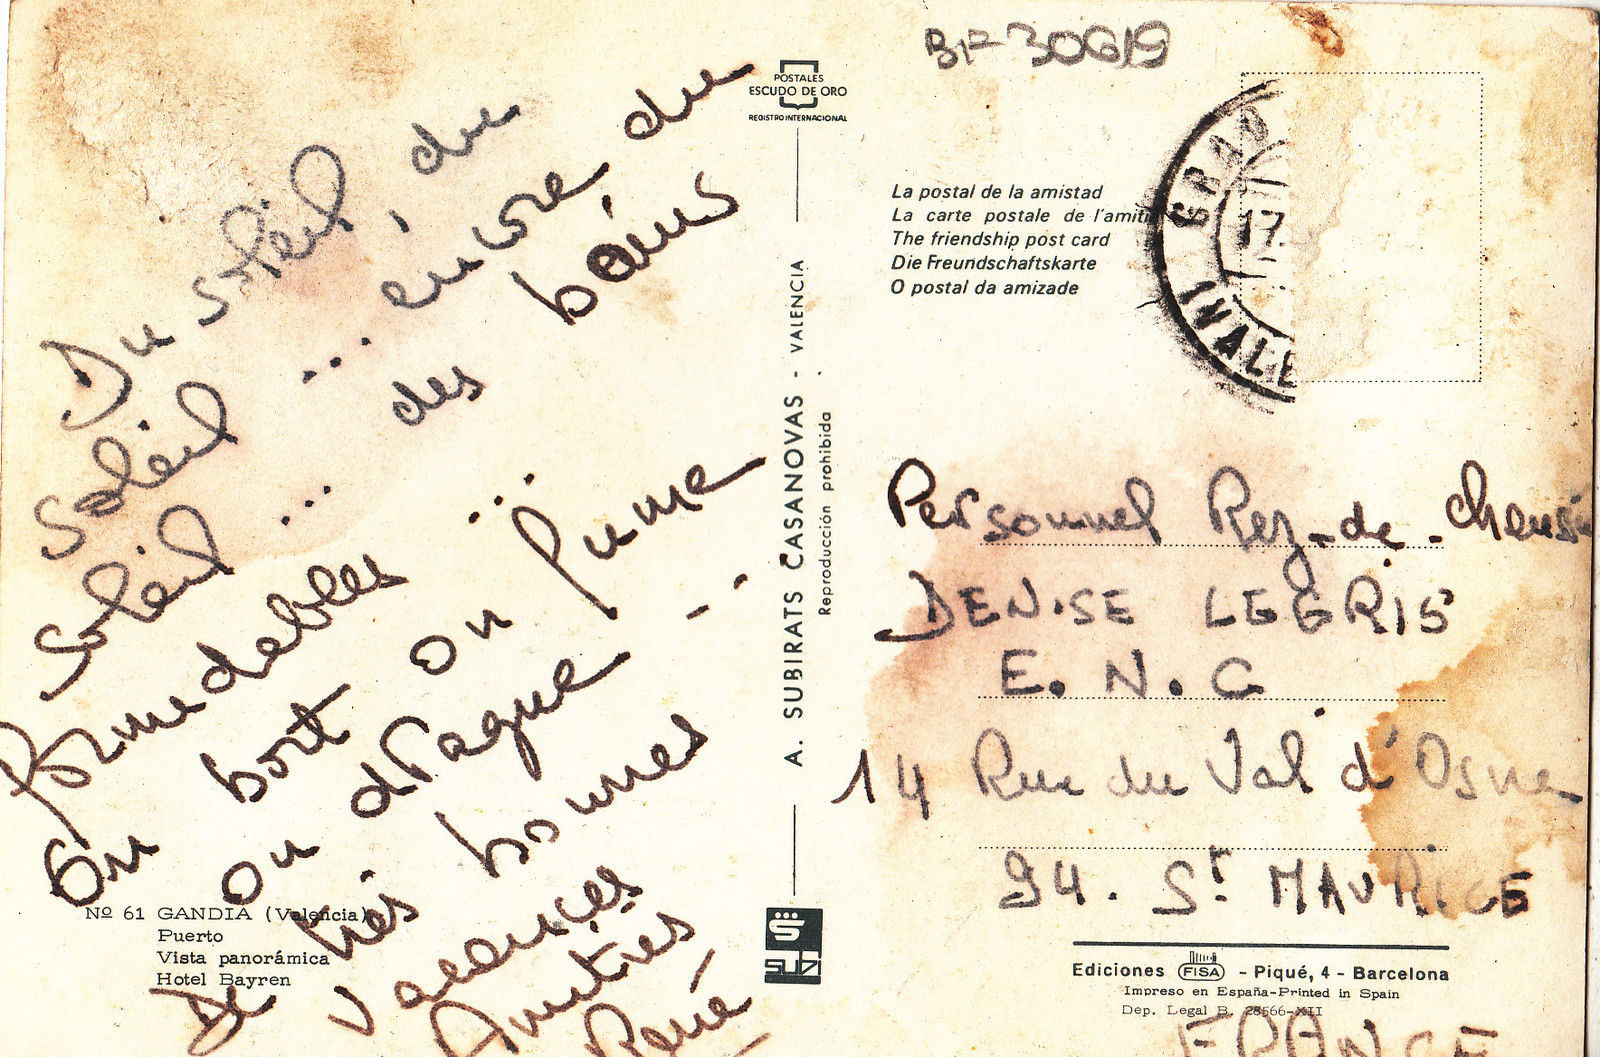 Du soleil, du
soleil ... encore du
soleil ... des bains
formidables ...
On bort on fume
on drague - -
De très bonnes
vacances
Amitiés
René
Nº 61 GANDIA (Valencia)
Puerto
Vista panorámica
Hotel Bayren
POSTALES
ESCUDO DE ORO
REGISTRO INTERNACIONAL
A. SUBIRATS CASANOVAS - VALENCIA
Reproducción prohibida
BF 30619
La postal de la amistad
La carte postale de l'amiti
The friendship post card
Die Freundschaftskarte
O postal da amizade
GRAO
17
VALE
Personnel Rez-de-chaussé
DENISE LEGRIS
E. N. G
14 Rue du Val d'Osne
94. St MAURICE
FRANCE
Ediciones FISA - Piqué, 4 - Barcelona
Impreso en España-Printed in Spain
Dep. Legal B. 28566-XII